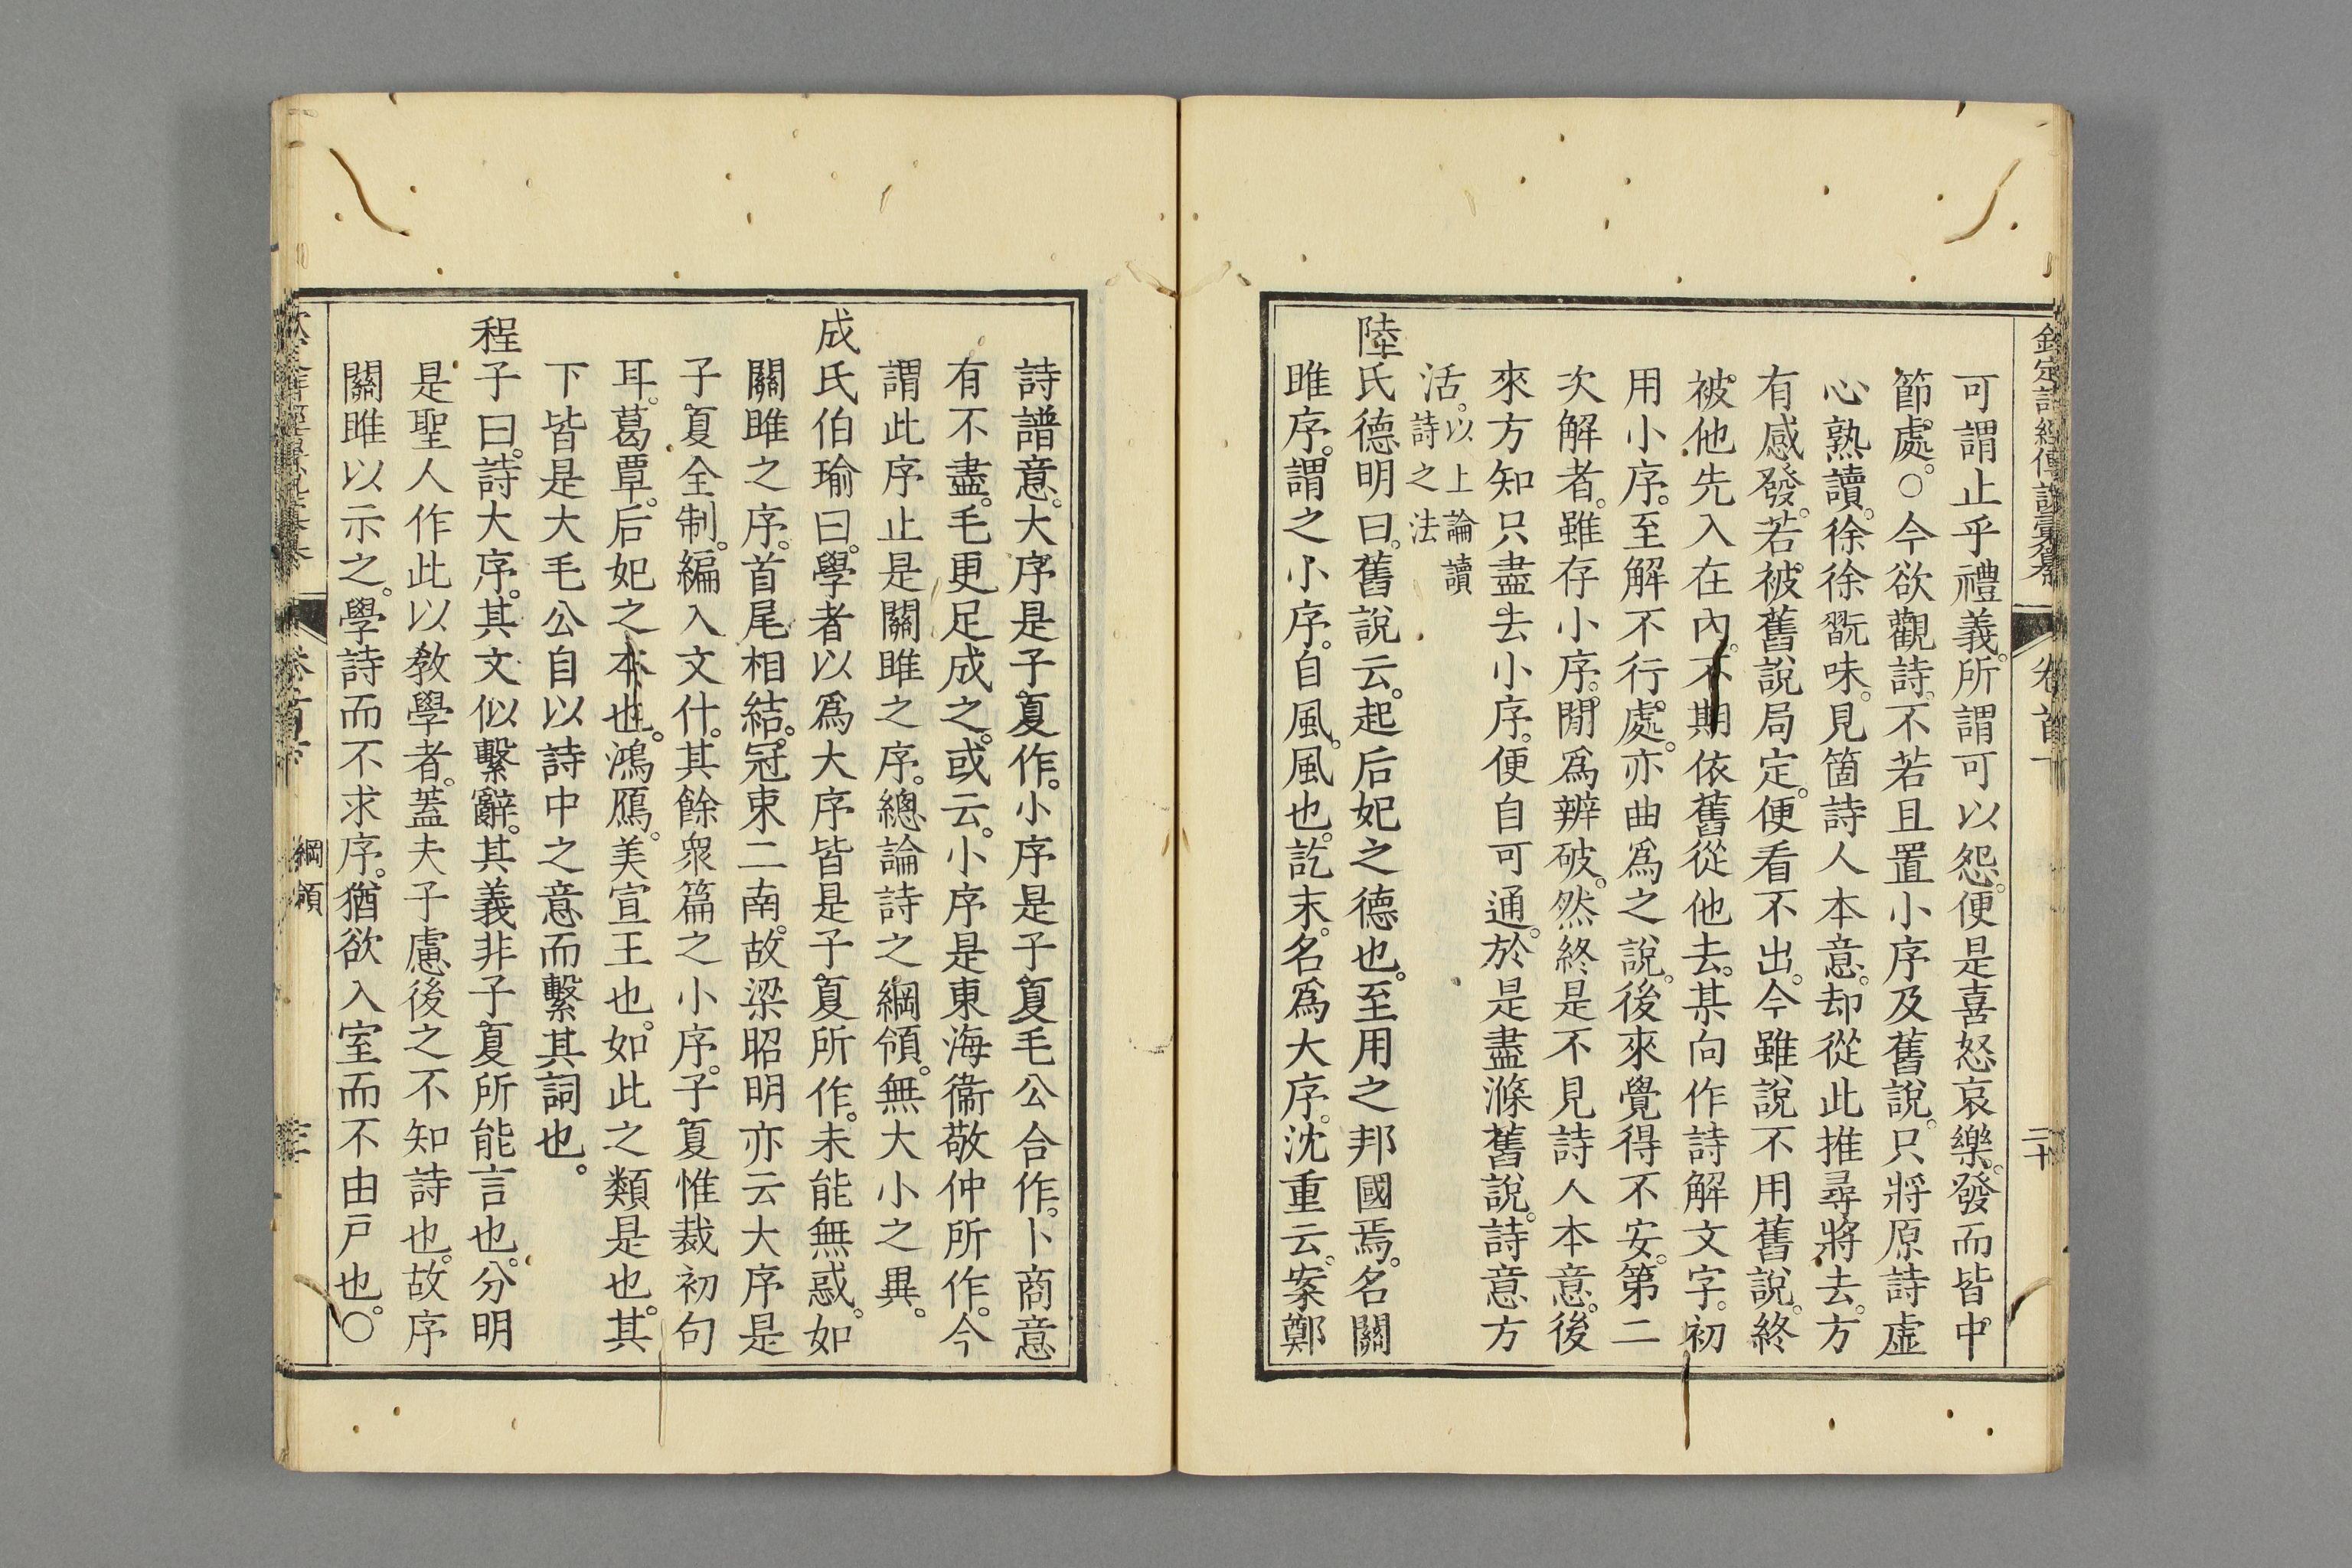 可謂止乎禮義。所謂可以怨。便是喜怒哀樂。發而皆中
節。處。○今欲觀詩。不若且置小序及舊說。只將原詩虛
心熟讀。徐徐翫味。見箇詩人本意。却從此推尋將去。方
有感發。若被舊說局定。便看不出。今雖說不用舊說。終
被他先入在內。不期依舊從他去。某向作詩解文字。初
用小序。至解不行處。亦曲爲之說。後來覺得不安。第二
次解者。雖存小序。閒爲辨破。然終是不見詩人本意。後
來方知只盡去小序。便自可通。於是盡滌舊說。詩意方
活。以上論讀
詩之法
陸氏德明曰。舊說云。起后妃之德也。至用之邦國焉。名關
雎序。謂之小序。自風。風也。訖末。名爲大序。沈重云。案鄭
詩譜意。大序是子夏作。小序是子夏毛公合作。卜商意
有不盡。毛更足成之。或云。小序是東海衞敬仲所作。今
謂此序止是關雎之序。總論詩之綱領。無大小之異。
成氏伯瑜曰。學者以爲大序皆是子夏所作。未能無惑。如
關雎之序。首尾相結。冠束二南。故梁昭明亦云大序是
子夏全制。編入文什。其餘衆篇之小序。子夏惟裁初句
耳。葛覃。后妃之本也。鴻鴈。美宣王也。如此之類是也。其
下皆是大毛公自以詩中之意而繫其詞也。
程子曰。詩大序。其文似繫辭。其義非子夏所能言也。分明
是聖人作此以教學者。蓋夫子慮後之不知詩也。故序
關雎以示之。學詩而不求序。猶欲入室而不由戶也。○
綱領